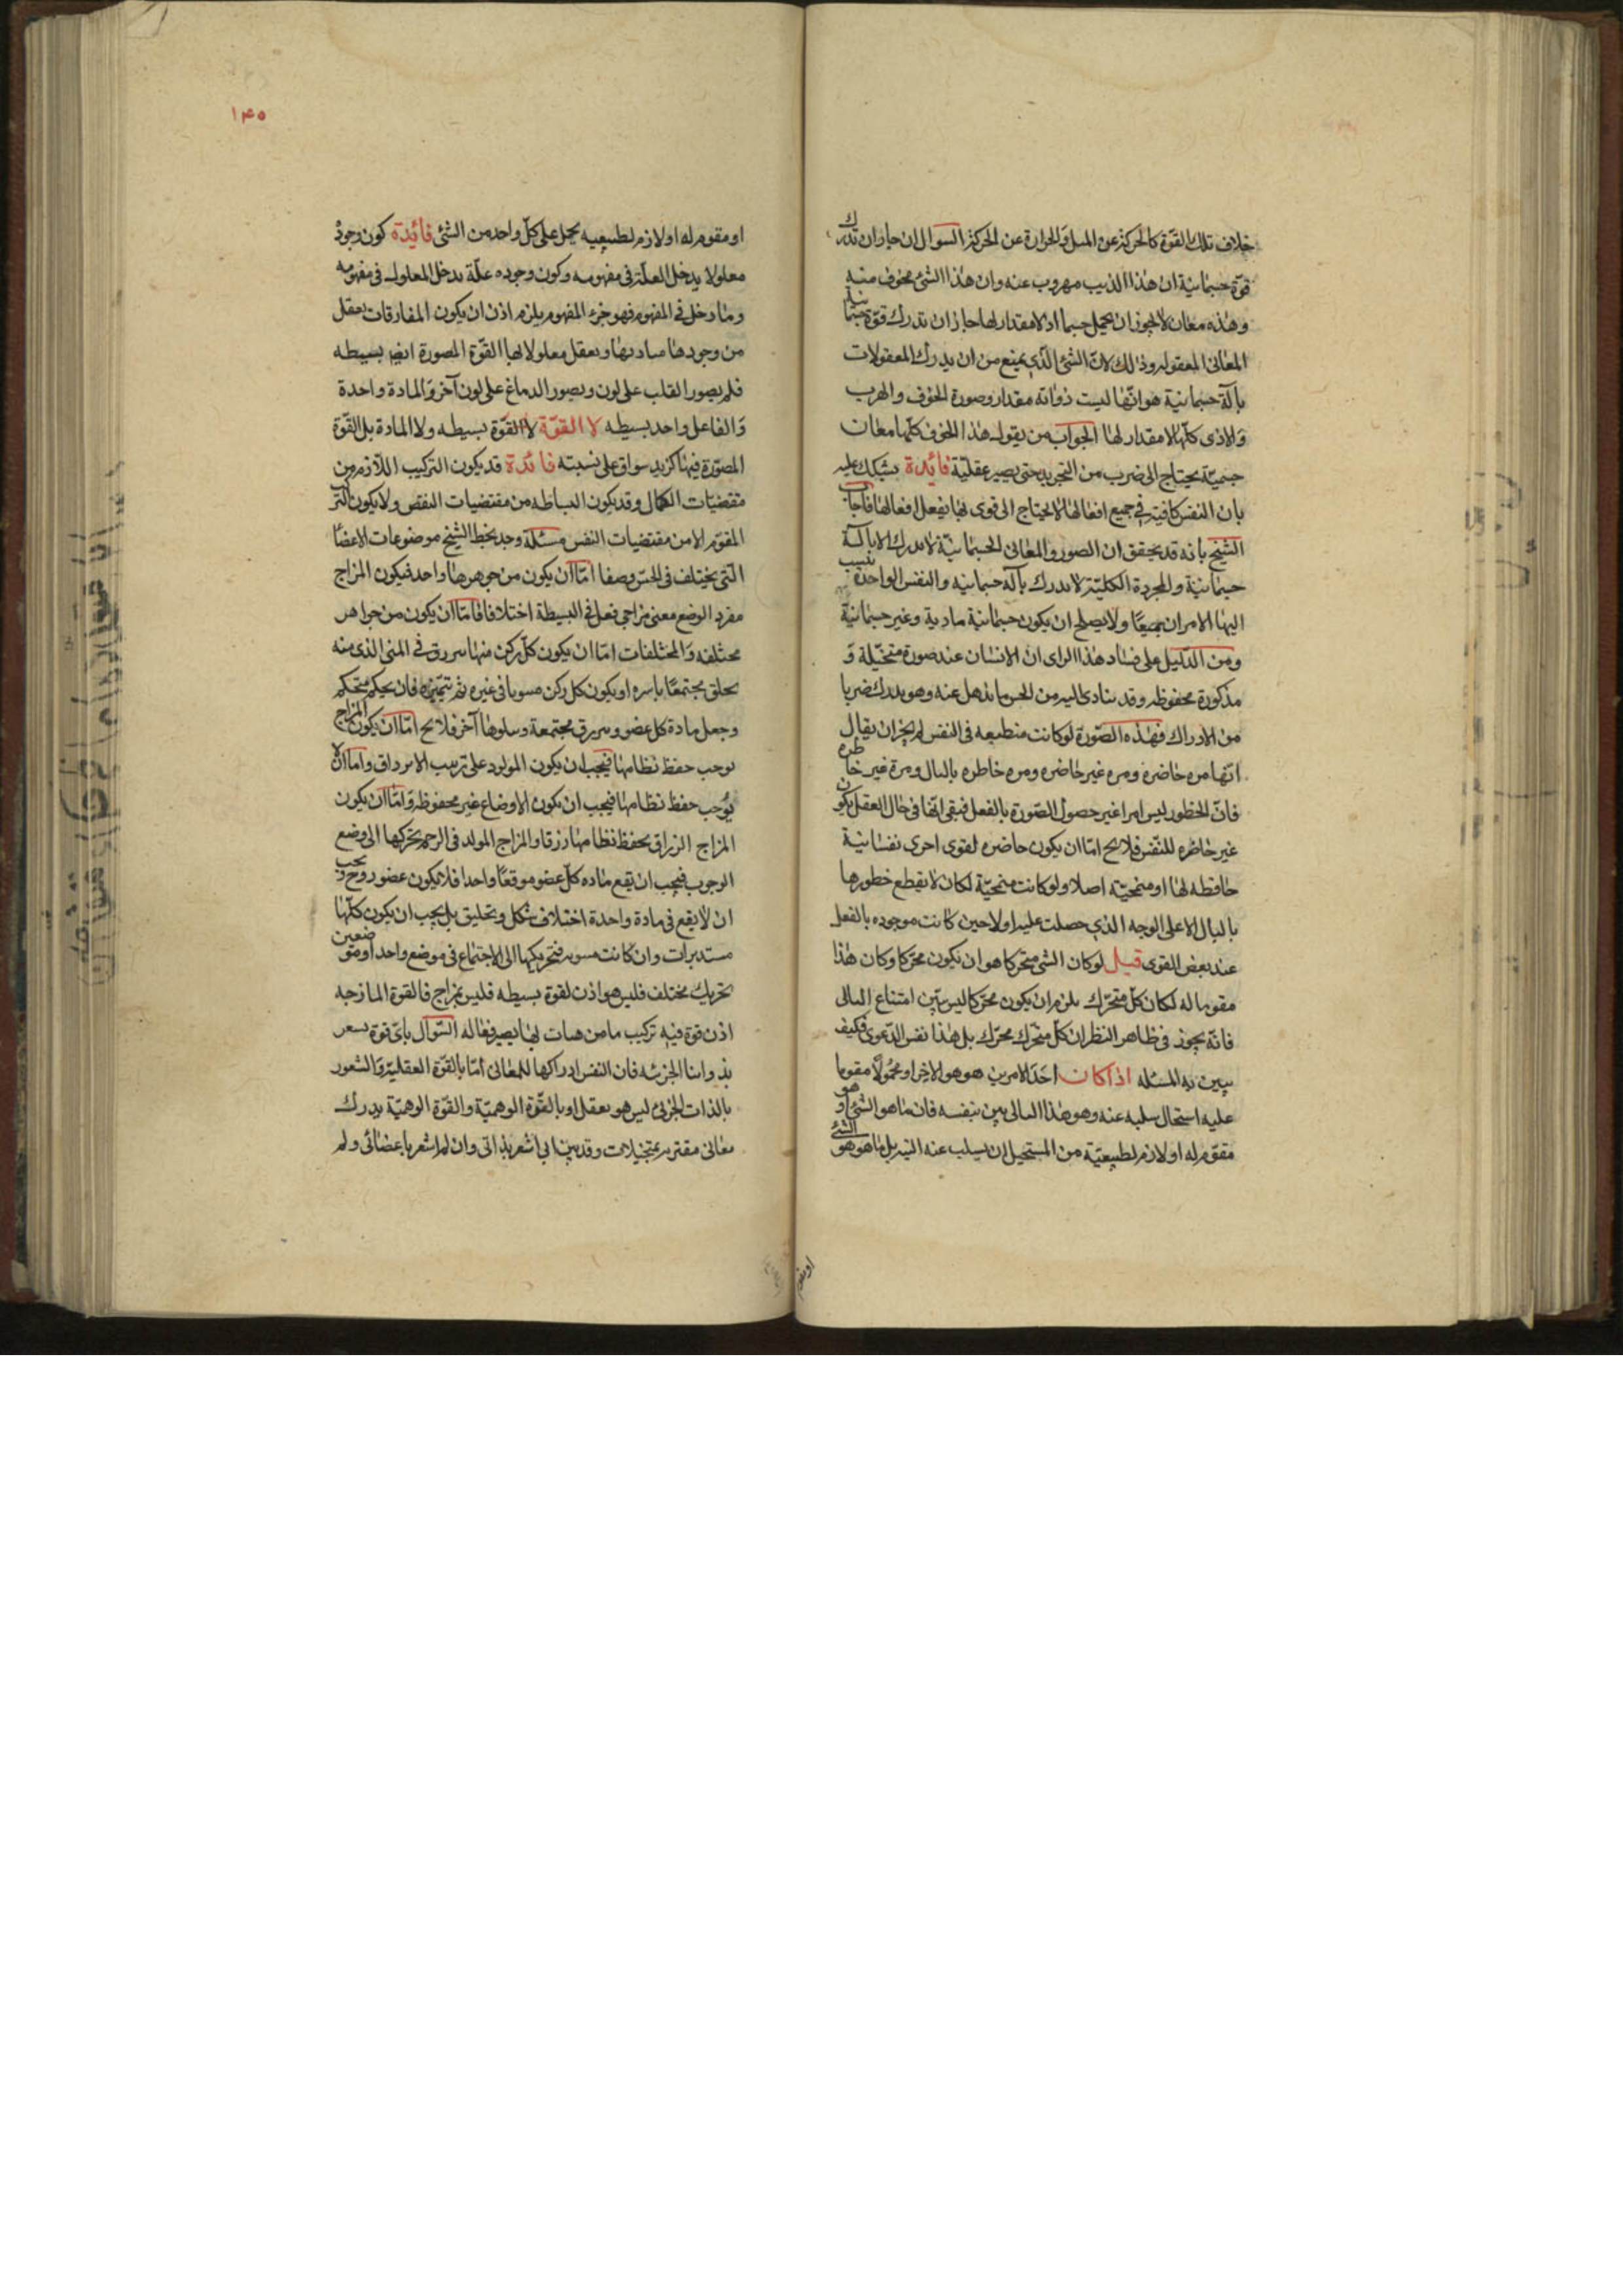 خلاف تلك القوّة كالحركة عن الميل والحرارة عن الحركة السوال ان جاز ان تدرك
قوّة جسمانية ان هذا الذيب مهروب عنه وان هذا الشئ مخوف منه
وهذه معان لا يجوز ان يحمل جسما اذ لا مقدار لها جاز ان تدرك قوة جسمانية
المعانى المعقوله وذلك لانّ الشئ الّذى يمنع من ان يدرك المعقولات
بآلة جسمانية هو انّها ليست ذواته مقدار وصورة الخوف والهرب
والاذى كلّها لا مقدار لها الجواب من يقول هذا الخوف كلّها معان
جسميّة يحتاج الى ضرب من التجريد حتى يصير عقليّة فائدة يشكك عليه
بان النفس كافية فى جميع افعالها لا يحتاج الى قوى لها بفعل افعالها فاجاب
الشيخ بانه قد يحقق ان الصور والمعانى الجسمانيّة لا تدرك الا بآلة
جسمانية والمجردة الكليّة لا تدرك بآلة جسمانيه والنفس الواحدة ينسب
اليها الامران جميعًا ولا يصلح ان يكون جسمانية مادية وغير جسمانية
ومن الدّليل على فساد هذا الراى ان الانسان عنده صورة متخيّلة و
مذكورة محفوظه وقد يتادى اليه من الحس ما يذهل عنه وهو يدرك ضربا
من الادراك فهذه الصّورة لو كانت منطبعه فى النفس لم يجز ان يقال
انّها مره حاضره ومره غير حاضره ومره خاطره بالبال ومرة غير خاطره
فانّ الخطور ليس امرا غير حصول الصّورة بالفعل فبقى انّها فى حال العقل يكون
غير خاطره للنّفس فلا يح امّا ان يكون حاضره لقوى اخرى نفسانية
حافظه لها او منمحيّة اصلا ولو كانت منمحيّة لكان لا يقطع خطورها
بالبال الا على الوجه الذى حصلت عليه اولا حين كانت موجوده بالفعل
عند بعض القوى قيل لو كان الشئ متحركا هو ان يكون محركا وكان هذا
مقوما له لكان كلّ متحرّك يلزم ان يكون محركا ليس بيّن امتناع التالى
فانّه يجوز فى ظاهر النظر ان كلّ متحرّك محرّك بل هذا نفس الدّعوى فكيف
يبين به المسئله اذا كان احد الامرين هو هو الاخر او محمُولًا مقوما
عليه استحال سلبه عنه وهو هذا التالى بين بنفسه فان ما هو الشئ او هو
مقوّم له او لازم لطبيعيّة من المستحيل ان يسلب عنه الشئ بل ما هو هو
١٤٥
او مقوم له او لازم لطبيعيه يحمل على كلّ واحد من الشئ فائدة كون وجود
معلولا يدخل العلّة فى مفهومه وكون وجوده علّة يدخل المعلول فى مفهومه
وما دخل فى المفهوم فهو جزء المفهوم يلزم اذن ان يكون المفارقات يعقل
من وجودها مباديها ويعقل معلولاتها القوّة المصورة ايض بسيطه
فلم يصور القلب على لون ويصور الدماغ على لون آخر والمادة واحدة
والفاعل واحد بسيطه لا القوّة لا القوّة بسيطه ولا المادة بل القوّة
المصوّرة فيها كزيد سواق على نسبته فائدة قد يكون التركيب اللّازم من
مقتضيات الكمال وقد يكون البساطه من مقتضيات النقص ولا يكون التركيب
المقوّم الا من مقتضيات النقس مسئلة وجد بخط الشيخ موضوعات الاعضا
التى يختلف فى الحسّ وصفا امّا ان يكون من جوهرها واحد فيكون المزاج
مفرد الوضع معنى مزاجى فعل فى البسيطة اختلافا فامّا ان يكون من جواهر
مختلفه والمختلفات امّا ان يكون كلّ ركن منها سررق فى المنى الذى منه
يخلق مجتمعًا باسره او يكون كل ركن مسوبا فى غيره ثم تتميّزه فان يحكم متحكم
وجعل مادة كل عضو وسررق مجتمعة وسلوها آخر فلا يح امّا ان يكون المزاج
يوجب حفظ نظامها فيجب ان يكون المولود على ترتيب الابرداق واما ان لا
يوجب حفظ نظامها فيجب ان يكون الاوضاع غير محفوظه وامّا ان يكون
المزاج الزراق يحفظ نظامها رزقا والمزاج المولد فى الرحم يحركها الى وضع
الوجوب فيجب ان يقع ماده كلّ عضو موقعًا واحدا فلا يكون عضو روح ويجب
ان لا يقع فى مادة واحدة اختلاف شكل وتخليق بل يجب ان يكون كلّها
مستديرات وان كانت مسوبه فتحريكها الى الاجتماع فى موضع واحد او موضعين
تحريك مختلف فليس هو اذن لقوة بسيطه فليس بمزاج فالقوة المازجه
اذن قوة فيه تركيب ما من هيات لها يصير فعاله السّوال باىّ قوة يشعر
بذواتنا الجزئيه فان النفس ادراكها للمعانى امّا بالقوّة العقلية والشعور
بالذات الجزئى ليس هو يعقل او بالقوّة الوهميّة والقوّة الوهميّة يدرك
معانى مقترنه بمتخيلات وقد بين انى اشعر بذاتى وان لم اشعر باعضائى ولم